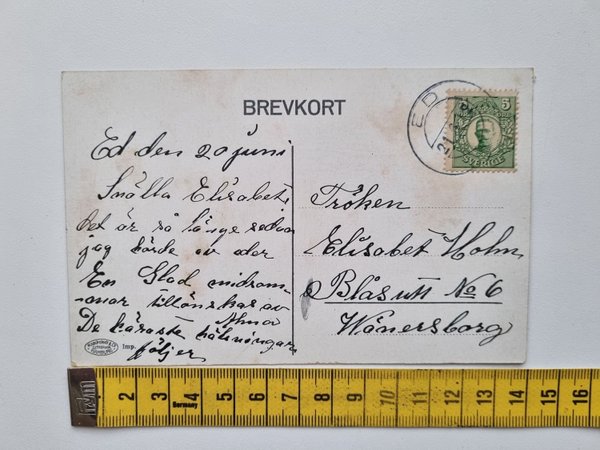 BREVKORT
ED
21.6.12
5
SVERIGE
Ed den 20 juni
Snälla Elisabet,
det är så länge sedan
jag hörde av der
En Glad midsom-
mar tillönskas av
Alma
De käraste hälsningar
följer
Imp.
Fröken
Elisabet Holm
Blåsutt No 6
Wänersborg
2 3 4 5 6 7 8 9 10 11 12 13 14 15 16
Germany